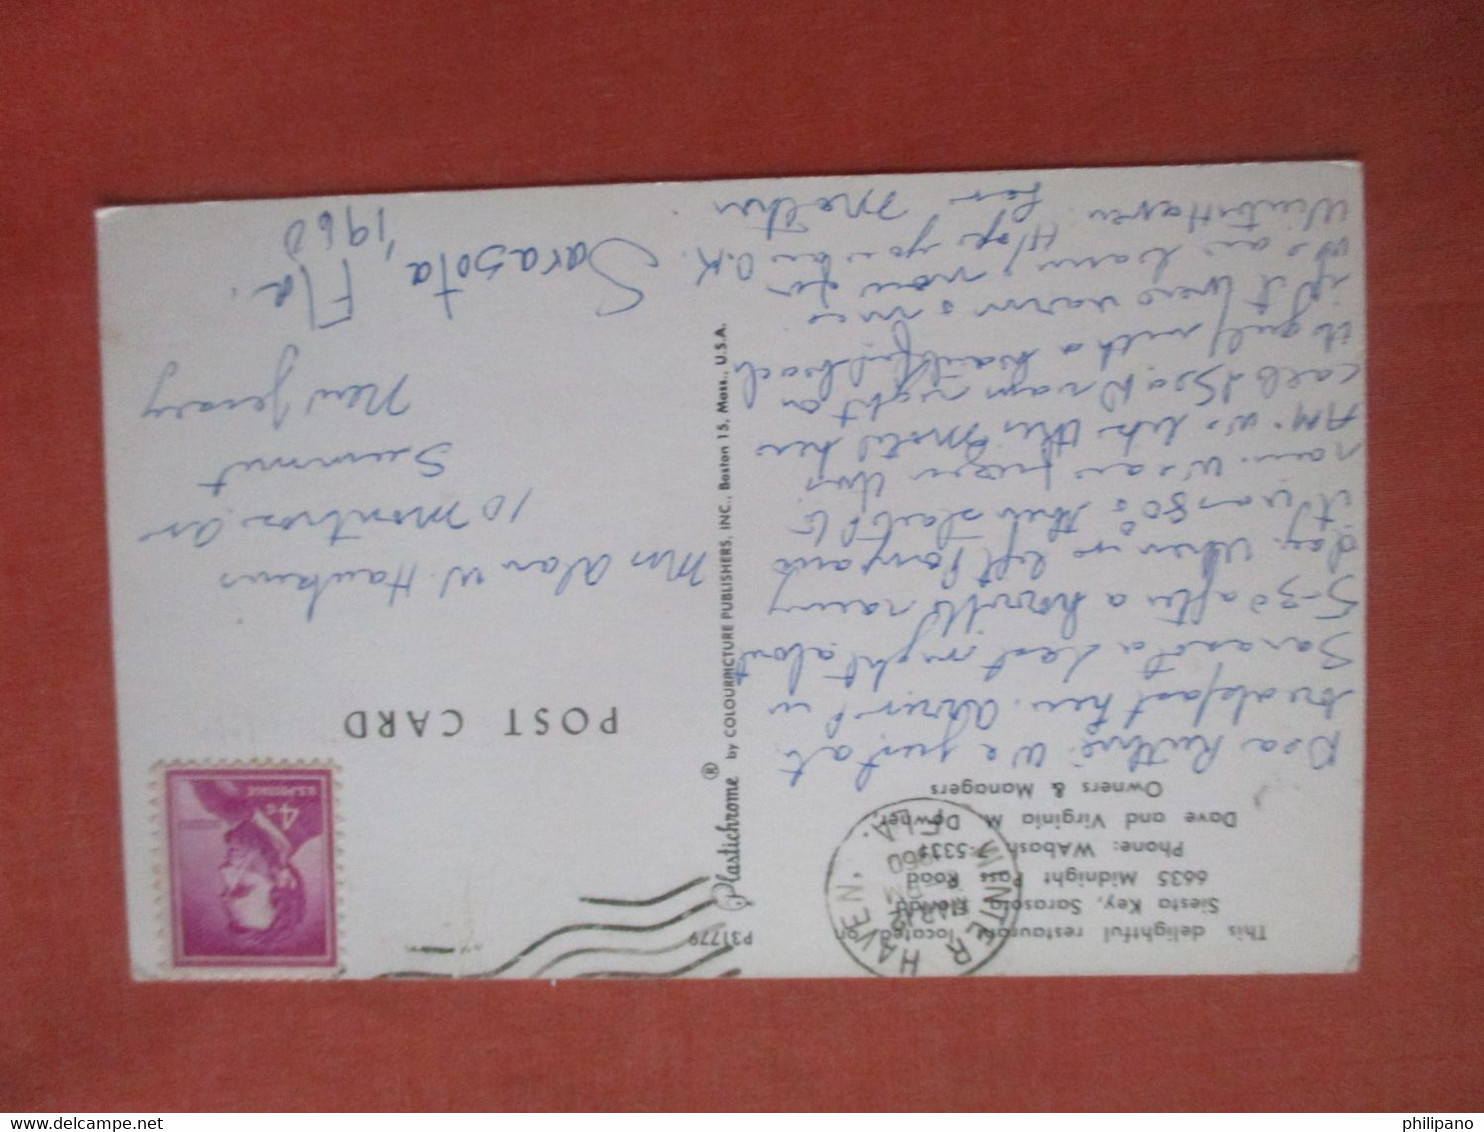 This delightful restaurant located on
Siesta Key, Sarasota, Florida
6635 Midnight Pass Road
Phone: WAbash
Dave and Virginia M. Downer,
Owners & Managers
Dear Ruthie: We just at
breakfast here. Arrived in
Sarasota last night about
5-30 after a horrible rainy
day. When we left Pompano
it was 80° then started to
rain. We are frozen this
AM. We like this motel here
right on
the gulf with a beautiful beach
if it were warm & nice
We are leaving now for
Winter Haven. Hope you are O.K.
Mother
WINTER HAVEN, FLA.
1960
P31779
Plastichrome ® by COLOURPICTURE PUBLISHERS, INC., Boston 15, Mass., U.S.A.
U.S. POSTAGE
4c
POST CARD
Mrs Alan W. Hawkins
10 Montrose Av
Summit
New Jersey
Sarasota, Fla.
1960
philipano